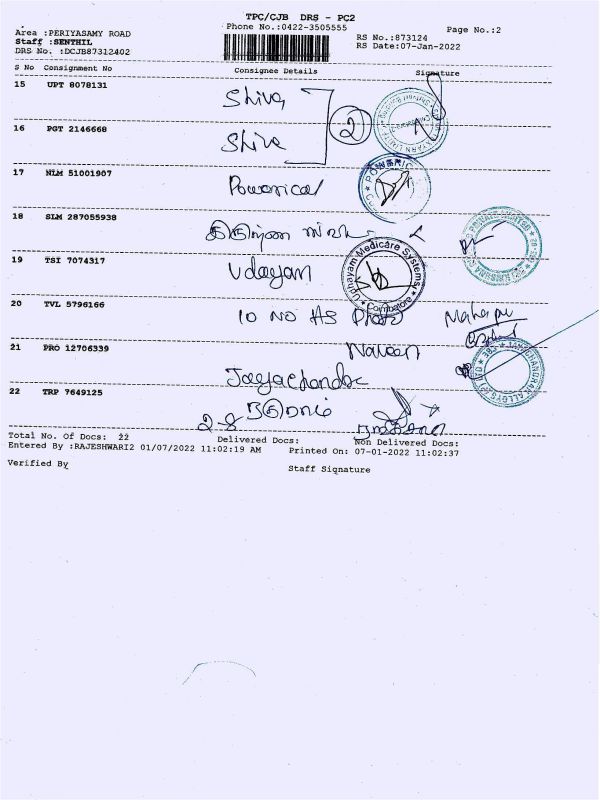 TPC/CJB DRS - PC2
Phone No.:0422-3505555
Page No.:2
Area :PERIYASAMY ROAD
Staff :SENTHIL
DRS No. :DCJB87312402
RS No.:873124
RS Date:07-Jan-2022
S No Consignment No Consignee Details Signature
15 UPT 8078131 Shiva
2
16 PGT 2146668 Shiva
17 NLM 51001907 Powerical
18 SLM 287055938
19 TSI 7074317 Udayam
Udhayam Medicare Systems
Coimbatore
20 TVL 5796166 10 NO AS
Naveen
21 PRO 12706339 Jayachandra
JAYACHANDRAN ALLOYS (P) LTD
22 TRP 7649125
Total No. Of Docs: 22 Delivered Docs: Non Delivered Docs:
Entered By :RAJESHWARI2 01/07/2022 11:02:19 AM Printed On: 07-01-2022 11:02:37
Verified By Staff Signature